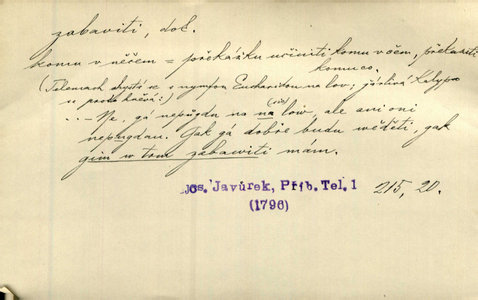 zabaviti, dok.
komu v něčem = překážku učiniti komu v čem, překaziti
komu co.
(Telemach chystá se s nymfou Eucharidou na lov; žárlivá Kalypso
u proto křičí:)
..– Ne, gá nepůgdu na na (sic) low, ale ani oni
nepugdau. Gak gá dobře budu wěděti, gak
gim w tom zabawiti mám.
Jos. Javůrek, Příb. Tel. 1 215, 20.
(1796)